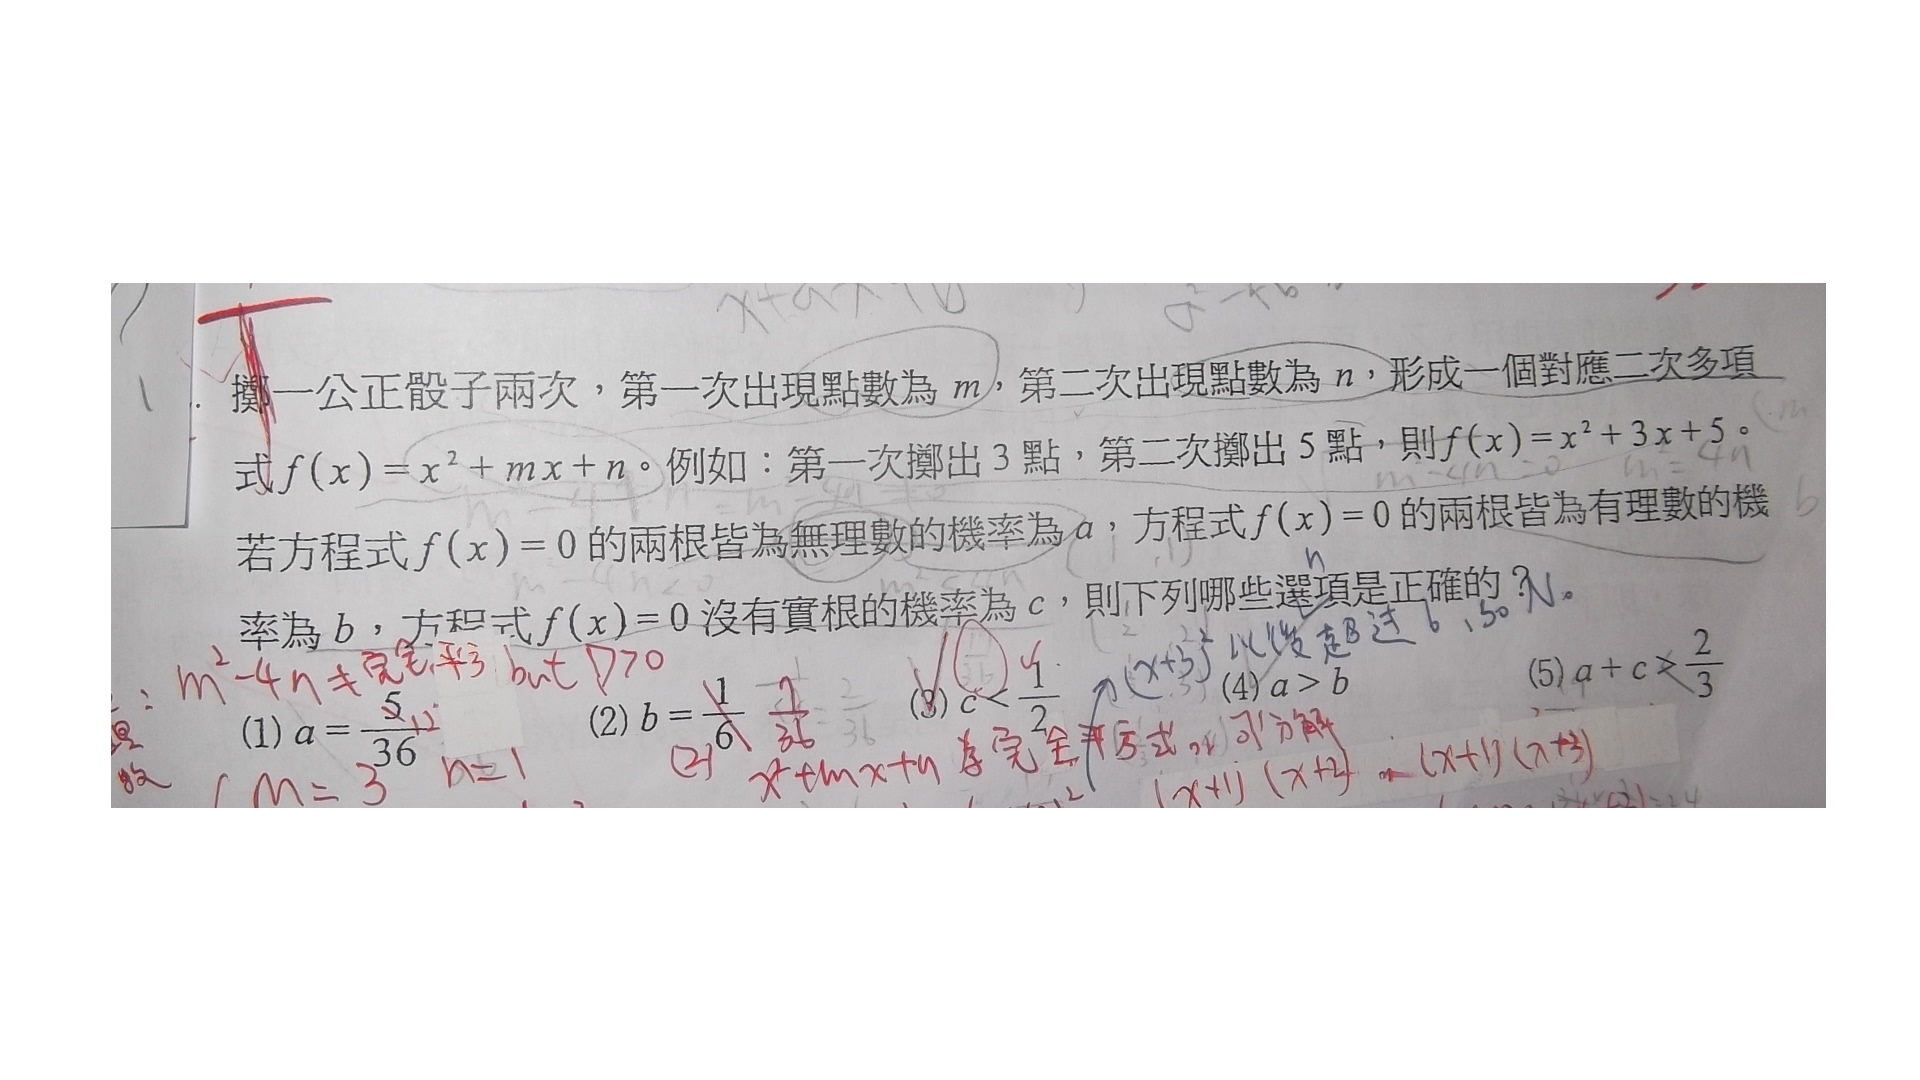 擲一公正骰子兩次，第一次出現點數為 m，第二次出現點數為 n，形成一個對應二次多項
式 f(x)=x²+mx+n。例如：第一次擲出 3 點，第二次擲出 5 點，則 f(x)=x²+3x+5。
m²-4n=0 m²=4n
若方程式 f(x)=0 的兩根皆為無理數的機率為 a，方程式 f(x)=0 的兩根皆為有理數的機
率為 b，方程式 f(x)=0 沒有實根的機率為 c，則下列哪些選項是正確的？
m²-4n≠完全平方 but D>0
(x+3)² 以後超過 6, so No
(1) a=5/36 (2) b=1/6 7/36 (3) c<1/2 (4) a>b (5) a+c>2/3
m=3 n=1
(2) x²+mx+n 為完全平方式 or 可分解
(x+1)(x+2) (x+1)(x+3)